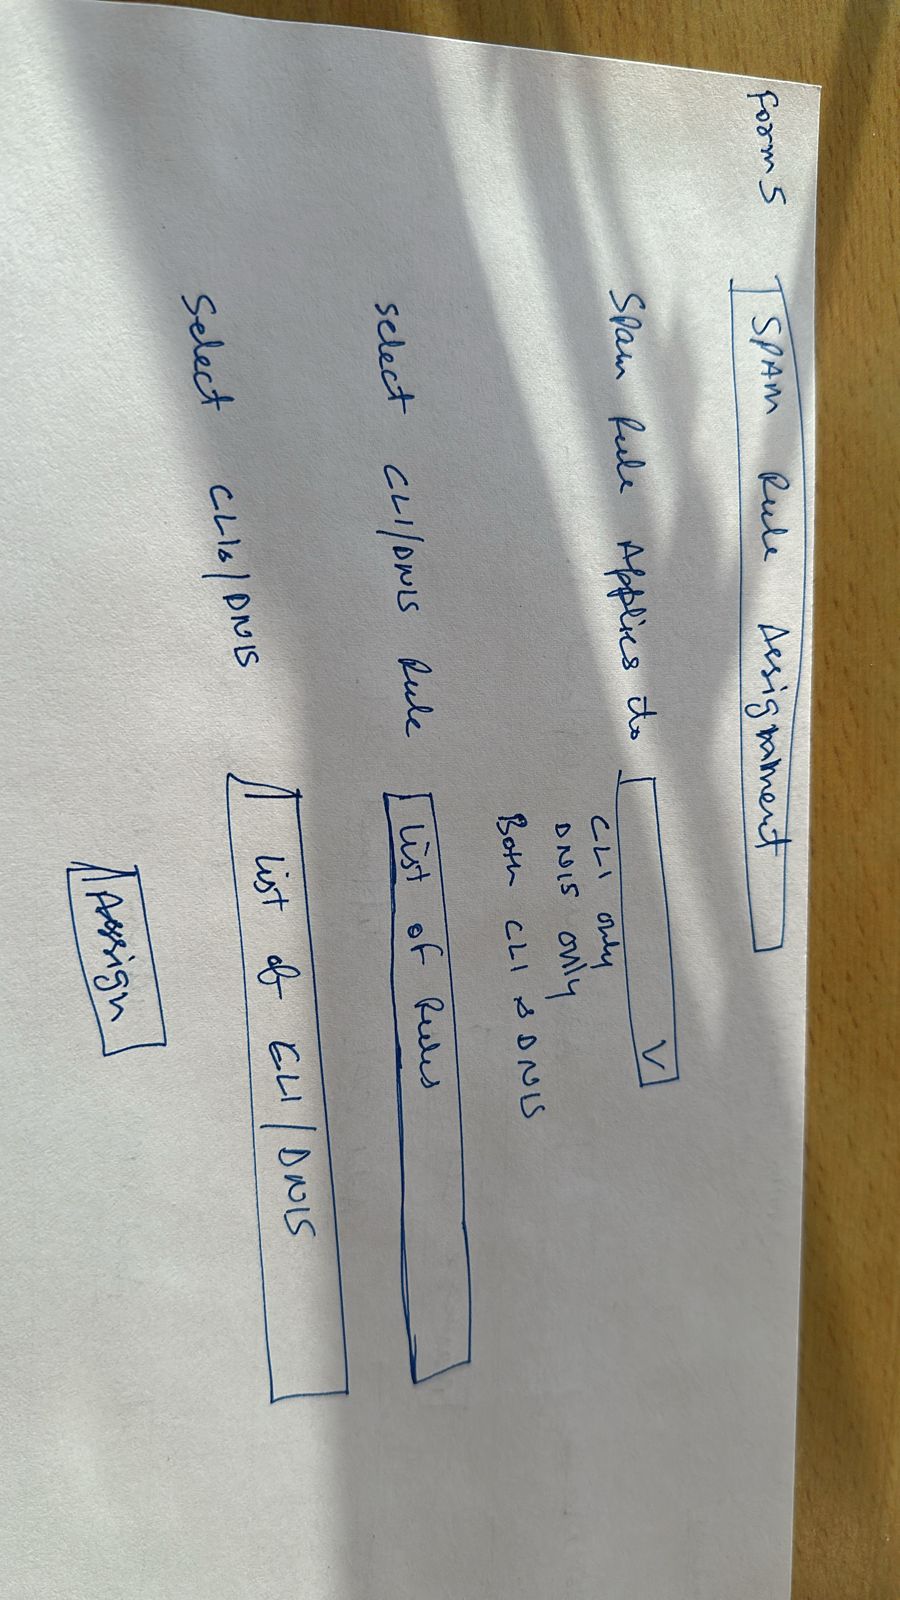 Form 5 SPAM Rule Assignment
Spam Rule Applies to V
CLI only
DNIS only
Both CLI & DNIS
Select CLI/DNIS Rule List of Rules
Select CLIs/DNIS List of CLI/DNIS
Assign